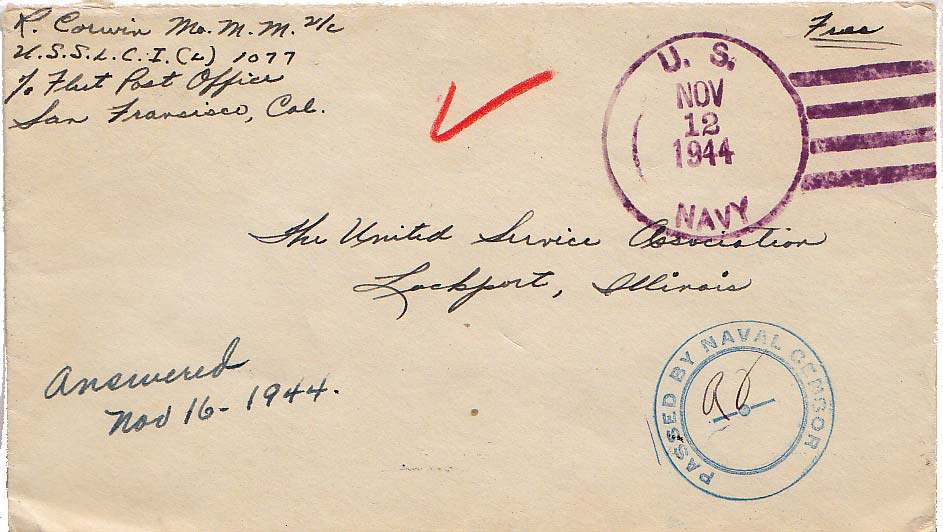 R. Corwin Mo.M.M. 2/c
U.S.S. L.C.I.(L) 1077
℅ Fleet Post Office
San Fransisco, Cal.
Free
U. S.
NOV
12
1944
NAVY
The United Service Association
Lockport, Illinois
Answered
Nov 16 - 1944.
PASSED BY NAVAL CENSOR